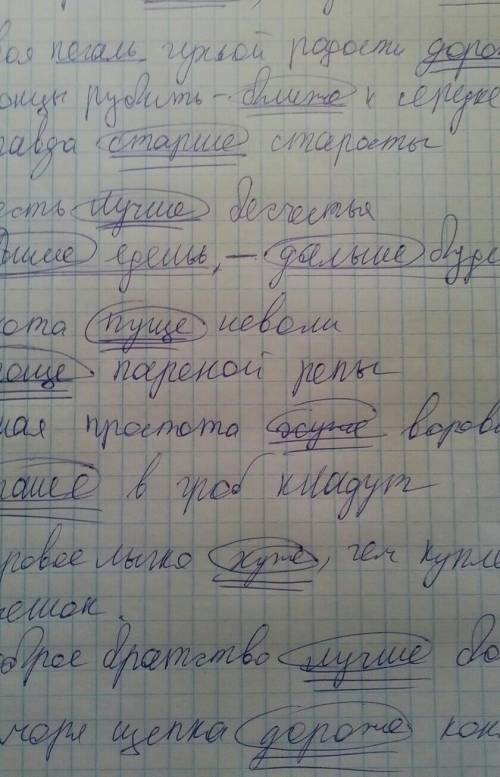 воя печаль чужой радости доро
онцы рубить - ближе к середке
равда старше старосты
есть лучше бесчестья
ише едешь, - дальше буде
хота пуще неволи
роще пареной репы
ная простота хуже воровс
раше в гроб кладут
ровое лычко хуже, чем купле
мешок.
оброе братство лучше бо
моря щепка дороже кон